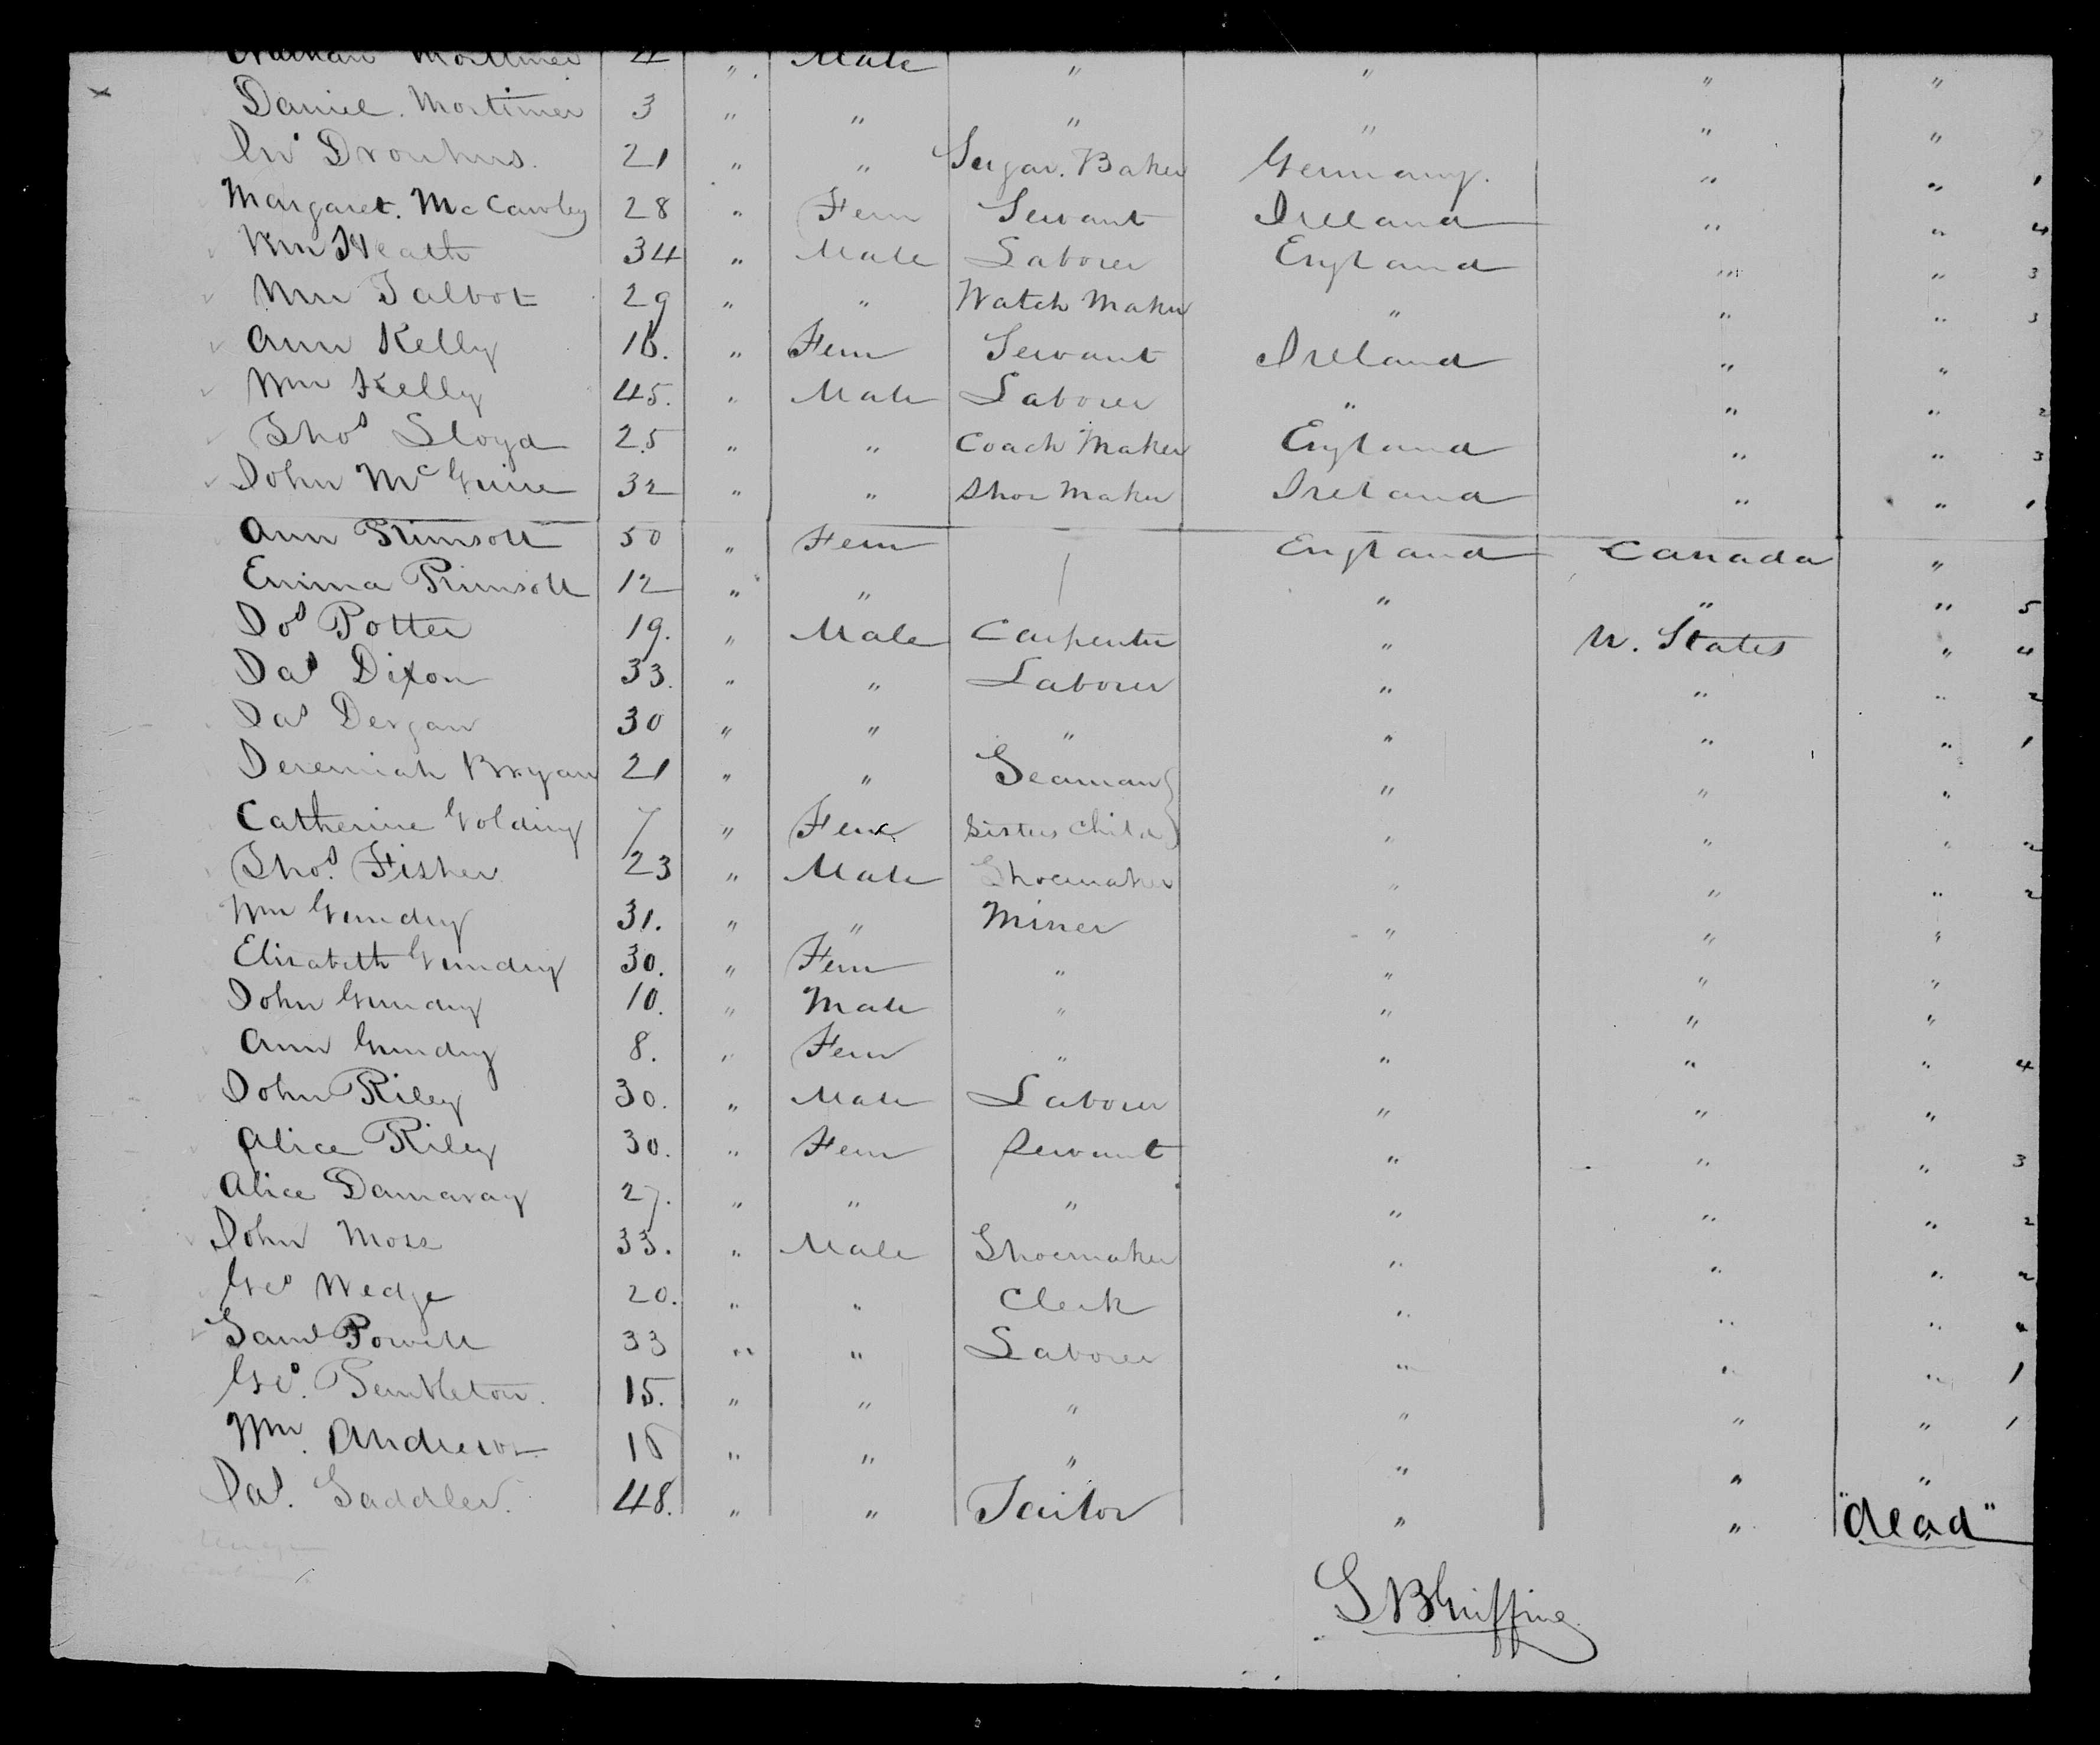 Nathan Mortimer 4 " Male " " " "
Daniel. Mortimer 3 " " " " " "
Drouhus. 21 " " Sugar. Baker Germany. " " 1
Margaret. McCawley 28 " Fem Servant Ireland " " 4
Wm Heath 34 " Male Laborer England " " 3
Wm Talbot 29 " " Watch Maker " " " 3
Ann Kelly 16. " Fem Servant Ireland " "
Wm Kelly 45. " Male Laborer " " " 2
Thos Lloyd 25 " " Coach Maker England " " 3
John McGuire 32 " " Shoe Maker Ireland " " 1
Ann Plimsoll 50 " Fem England Canada "
Emma Plimsoll 12 " " " " " 5
Jos Potter 19. " Male Carpenter " U. States " 4
Jas Dixon 33. " " Laborer " " " 2
Jas Dergan 30 " " " " " " 1
Jeremiah Bryan 21 " " Seaman } " " "
Catherine Golding 7 " Fem Sisters Child } " " " 2
Thos. Fisher 23 " Male Shoemaker " " " 2
Wm Gundry 31. " " Miner " " "
Elizabeth Gundry 30. " Fem " " " "
John Gundry 10. " Male " " " "
Ann Gundry 8. " Fem " " " " 4
John Riley 30. " Male Laborer " " "
Alice Riley 30. " Fem Servant " " " 3
Alice Damaray 27. " " " " " " 2
John Moss 33. " Male Shoemaker " " " 2
Geo Wedge 20. " " Clerk " " "
Saml Powell 33 " " Laborer " " " 1
Geo. Pembleton. 15. " " " " " " 1
Wm. Andrews 18 " " " " " "
Jas. Saddler. 48. " " Tailor " " "dead"
S B Griffing